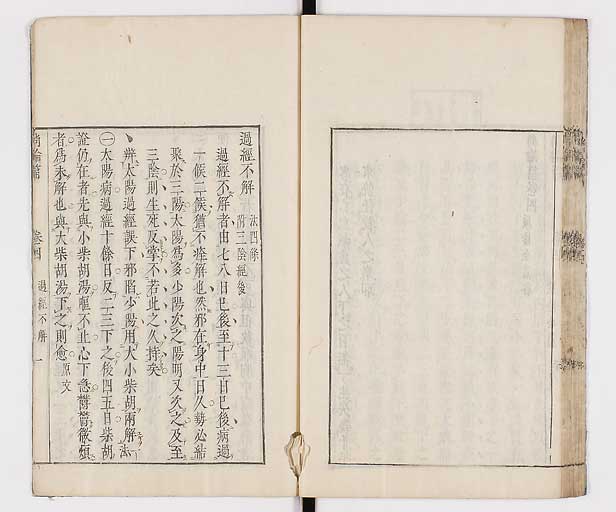 過經不解 法四條 附三陰經後
過經不解者由七八日已後至十三日已後病過
一候二候猶不痊解也然邪在身中日久勢必結
聚於三陽太陽為多少陽次之陽明又次之及至
三陰則生死反掌不若此之久持矣
辨太陽過經誤下邪陷少陽用大小柴胡兩解法
㊀太陽病過經十餘日反二三下之後四五日柴胡
證仍在者先與小柴胡湯嘔不止心下急鬱鬱微煩
者為未解也與大柴胡湯下之則愈原文
尚論篇 卷四 過經不解 一